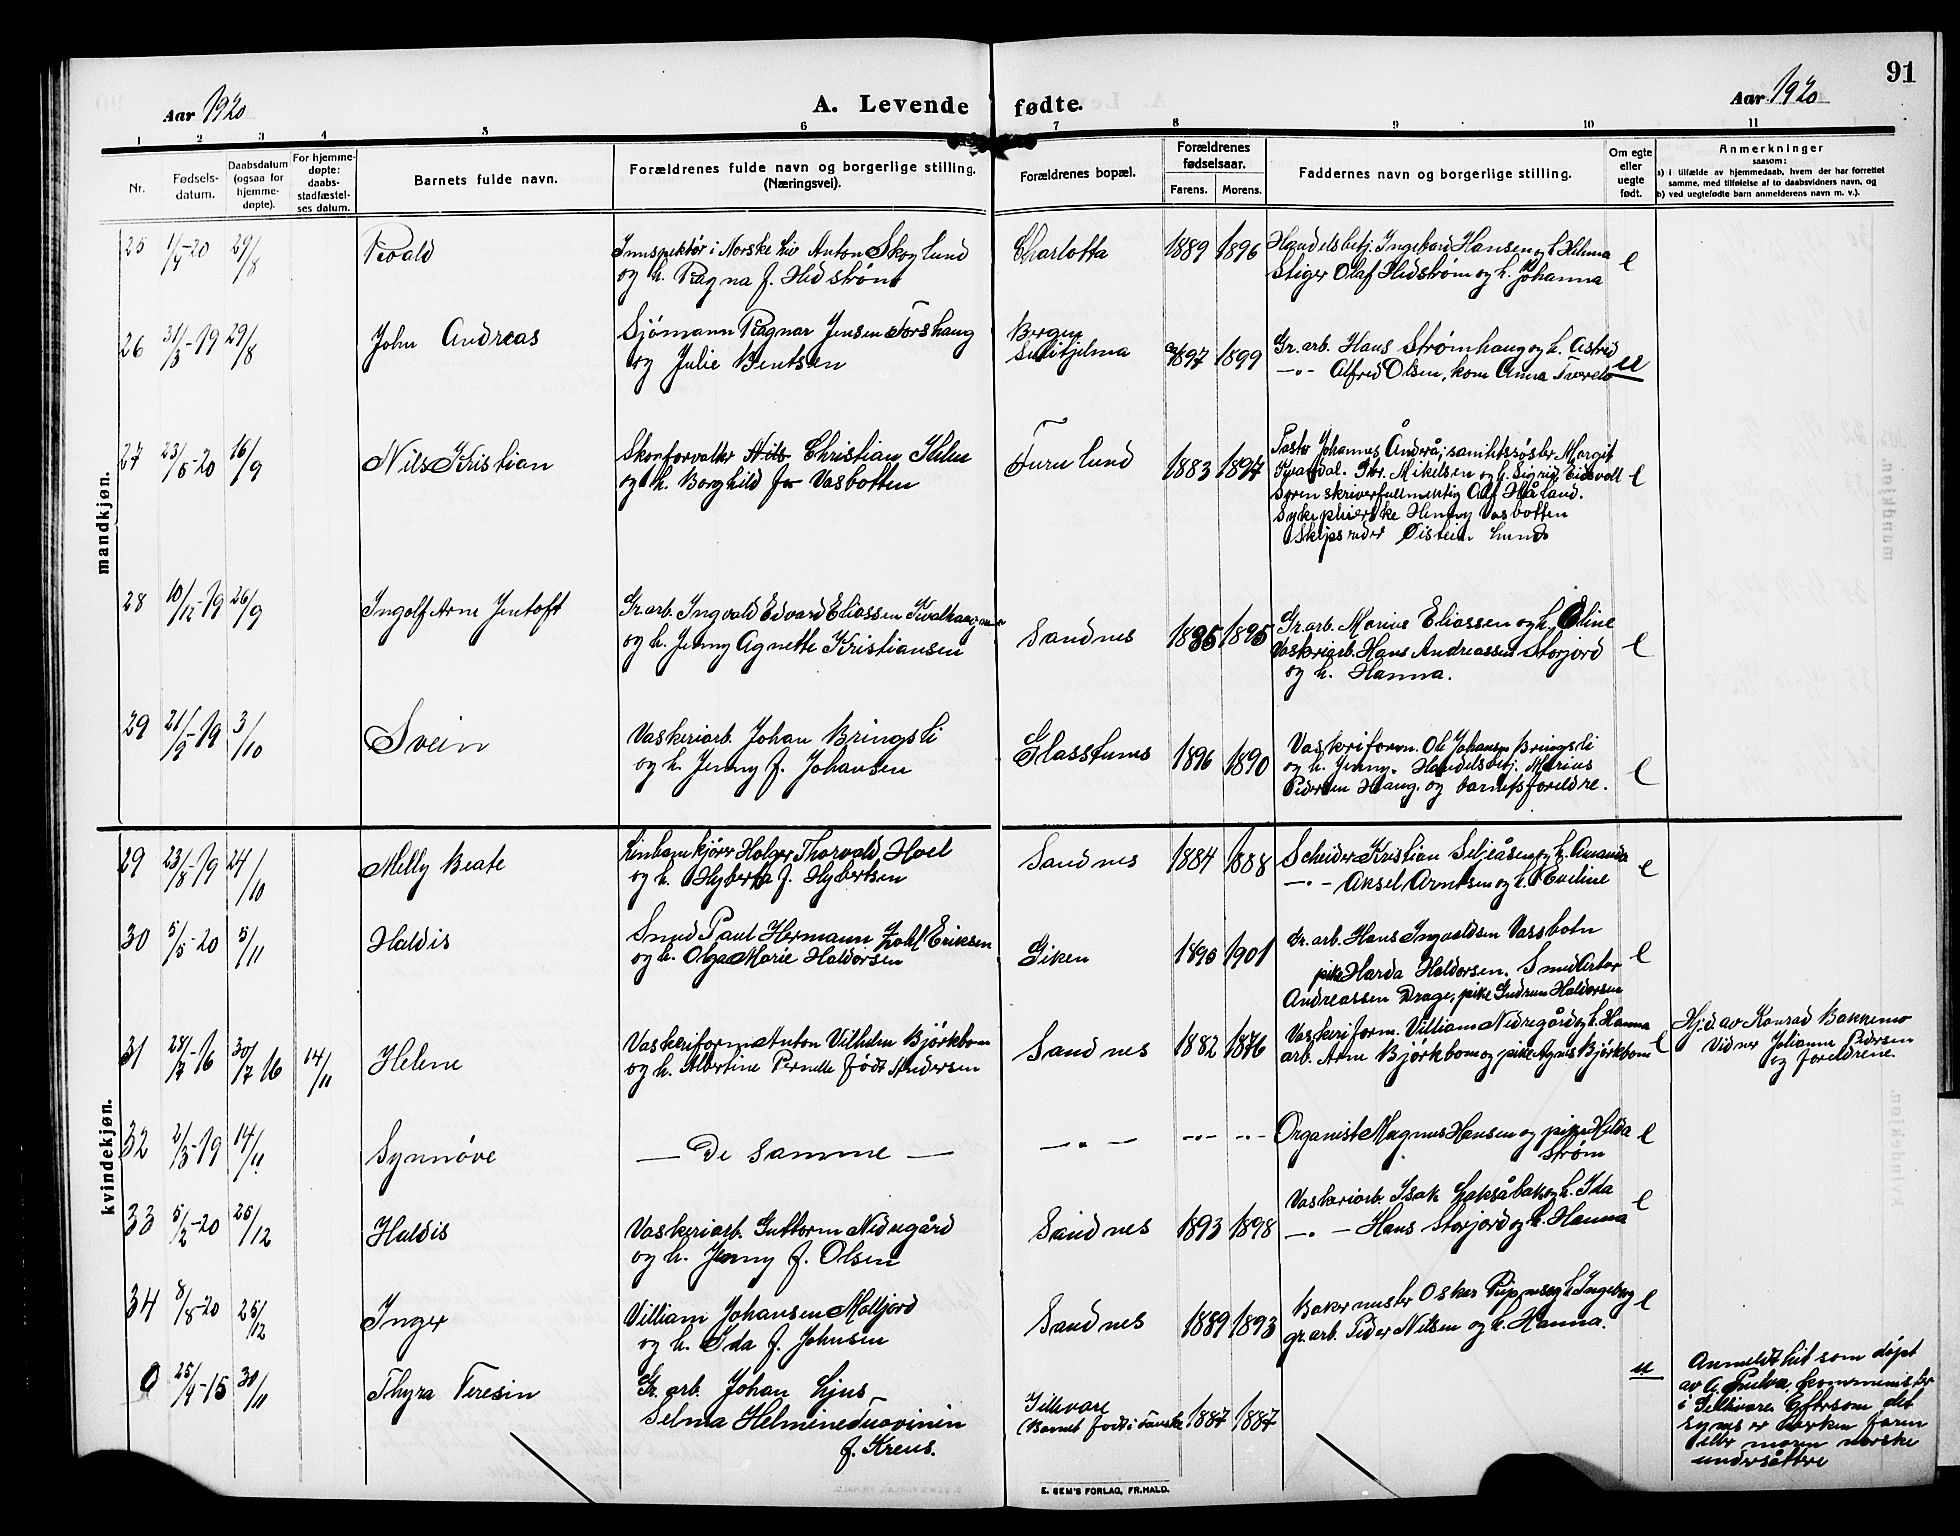 91
Aar 1920
A. Levende fødte.
Aar 1920
1 2 3 4 5 6 7 8 9 10 11
Nr.
Fødsels-
datum.
Daabsdatum
(ogsaa for
hjemme-
døpte).
For hjemme-
døpte:
daabs-
stadfæstel-
ses datum.
Barnets fulde navn.
Forældrenes fulde navn og borgerlige stilling.
(Næringsvei).
Forældrenes bopæl.
Forældrenes
fødselsaar.
Farens. Morens.
Faddernes navn og borgerlige stilling.
Om egte
eller
uegte
født.
Anmerkninger
saasom:
a) i tilfælde av hjemmedaab, hvem der har forrettet
samme, med tilføielse af to daabsvidners navn, og
b) ved uegtefødte barn anmelderens navn m. v.).
mandkjøn.
25 1/4-20 29/8 Roald
Innspektør i Norske Liv Anton Skoglund
og h. Ragna f. Hedstrøm
Charlotta 1889 1896
Handelsbetj. Ingebard Hansen og h. Helma
Stiger Olaf Hedstrøm og h. Johanna e
26 31/3-19 29/8 John Andreas
Sjömann Ragnar Jensen Forshaug
og Julie Bentsen
Bergen
Sulitjelma
1897 1899
Gr. arb. Hans Strømhaug og h. Astrid
-"- Alfred Olsen, kone Anna Tverelv u
27 23/5-20 16/9 Nils Kristian
Skonforvalter Nils Christian
og h. Borghild f. Vasbotten
Furulund 1883 1897
Johannes Andrå, Margit
Kvandal. Mikelsen og h. Sigrid Eidsvoll e
Sorenskriverfullmektig Alf Håland.
Sykepleierske Henny Vasbotten
Skipsreder Øistein Lund
28 10/12-19 26/9 Ingolf Arne Jentoft
Gr. arb. Ingvald Edvard Eliassen
og h. Jenny Agnette Kristiansen
Sandnes 1885 1895
Gr. arb. Marius Eliassen og h. Oline
Vaskeriarb. Hans Andreassen Storjord
og h. Hanna. e
29 21/9-19 3/10 Svein
Vaskeriarb. Johan Bringsli
og h. Jenny f. Johansen
Glasstunes 1896 1890
Vaskeriform. Ole Johansen Bringsli
og h. Jenny. Handelsbetj. Marius
Pedersen Haug. og barnets foreldre. e
kvindekjøn.
29 23/8-19 24/10 Melly Beate
Linbanekjører Holger Thorvald Hoel
og h. Hyberta f. Hybertsen
Sandnes 1884 1888
Scheider Kristian Seljeåsen og h. Amanda
-"- Aksel Arntsen og h. Eveline e
30 5/5-20 5/11 Haldis
Smed Paul Hermann Zahl Eriksen
og h. Olga Marie Haldorsen
Giken 1895 1901
Gr. arb. Hans Ingvaldsen Vassbotn
pike Harda Haldorsen. Smed Artur
Andreassen Drage, pike Gudrun Haldorsen e
31 28/7-16 30/7 16 14/11 Helene
Vaskeriform Anton Vilhelm Bjørkbom
og h. Albertine Pernelle født Andersen
Sandnes 1882 1876
Vaskeriform. Villiam Nedregård og h. Hanna
arb. Arne Bjørkbom og pike Agnes Bjørkbom e
Hj.d. av Konrad Bakkemo
Vidner Johanne Pedersen
og foreldrene.
32 2/3-19 14/11 Synnøve
— De samme —
— " — -"- -"-
Organist Magnus Hansen og pike Helda
Strøm e
33 5/2-20 26/12 Haldis
Vaskeriarb. Guttorm Nedregård
og h. Jenny f. Olsen
Sandnes 1893 1898
Vaskeriarb. Isak Laksåbak og h. Ida
-"- Hans Storjord og h. Hanna e
34 8/8-20 25/12 Inger
Villiam Johansen Molljord
og h. Ida f. Johnsen
Sandnes 1889 1893
Bakermester Oskar og h. Ingeborg
gr. arb. Peder Nilsen og h. Hanna. e
0 25/9-15 30/11 Thyra Teresin
Gr. arb. Johan Ljus
Selma Helmine Tuovinin
f. Kreus.
Gellivare
(Barnet født i Fauske 1887 1887
u
Anmeldt hit som døpt
av A. kommunister
i Gellivare. Eftersom det
synes er hverken faren
eller moren norske
undersåttere
E. SEM'S FORLAG, FR.HALD.